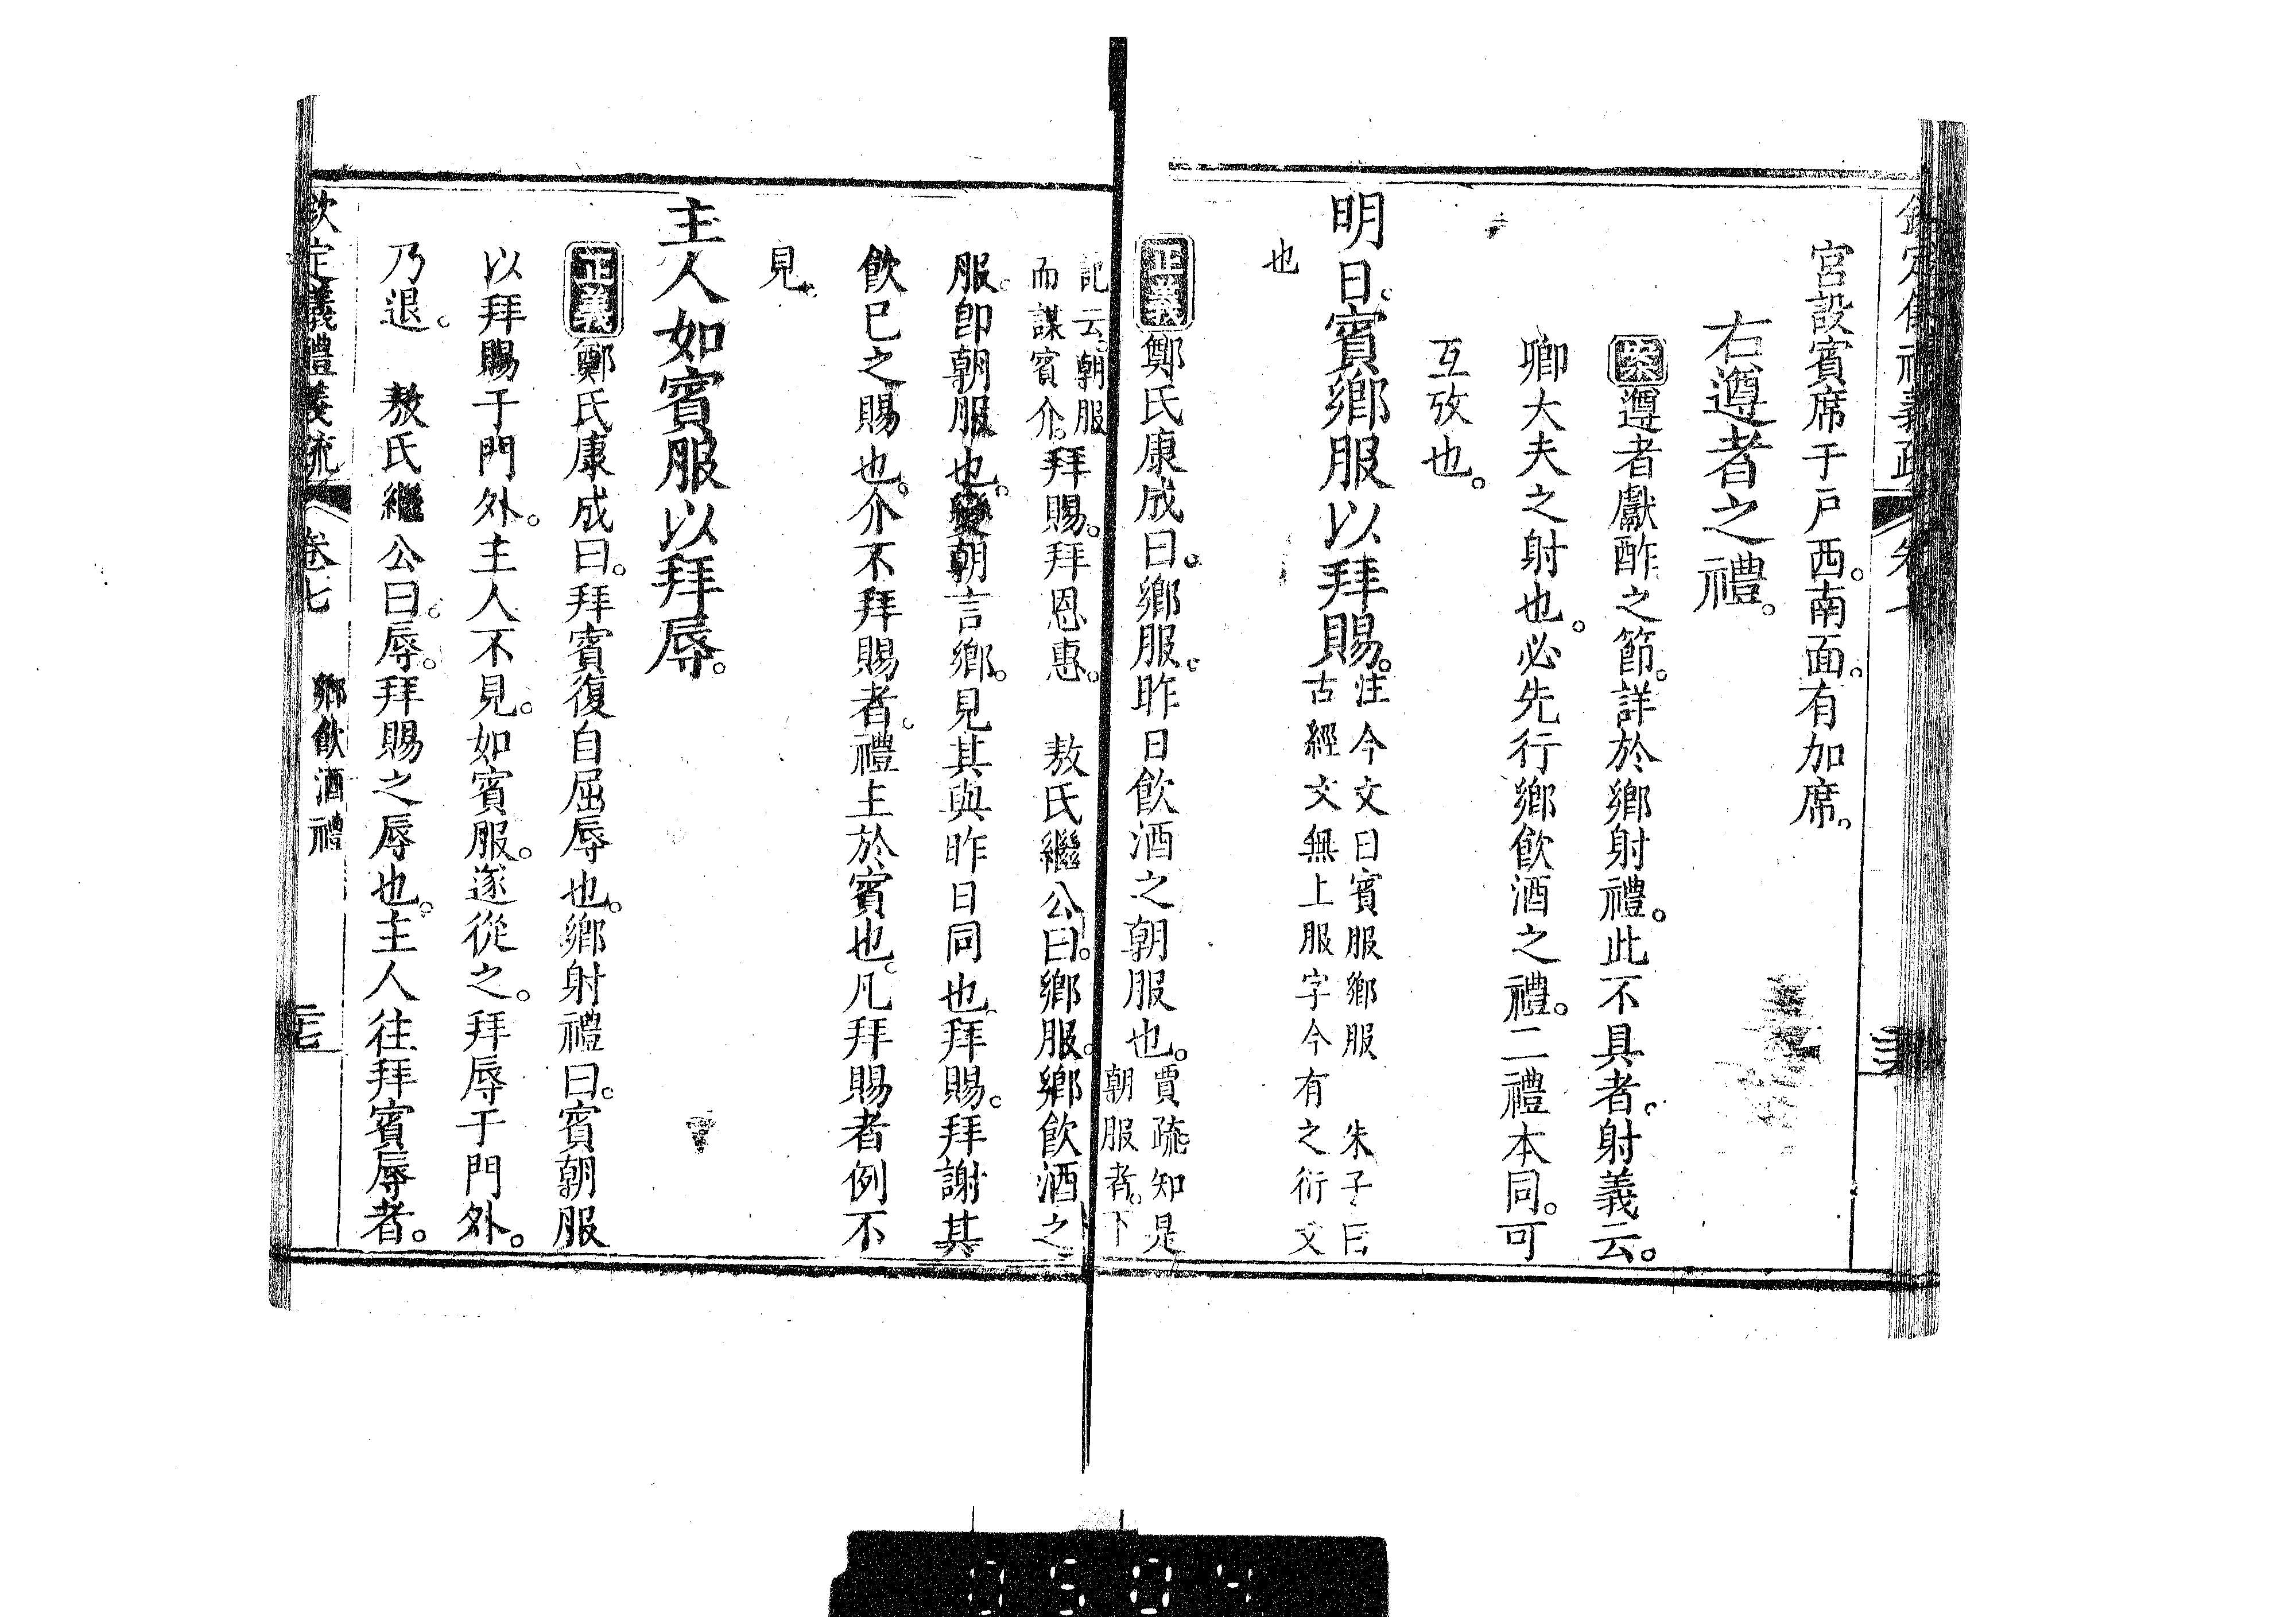 宮設賓席于戶西。南面。有加席。
右遵者之禮。
案遵者獻酢之節。詳於鄉射禮。此不具者。射義云。
鄉大夫之射也。必先行鄉飲酒之禮。二禮本同。可
互攷也。
明日。賓鄉服以拜賜。注今文曰賓服鄉服　朱子曰
古經文無上服字今有之衍文
也
正義鄭氏康成曰。鄉服。昨日飲酒之朝服也。賈疏知是
朝服者。下
記云。朝服
而謀賓介。拜賜。拜恩惠。　敖氏繼公曰。鄉服。鄉飲酒之
服。卽朝服也。變朝言鄉。見其與昨日同也。拜賜。拜謝其
飲已之賜也。介不拜賜者。禮主於賓也。凡拜賜者例不
見。
主人如賓服以拜辱。
正義鄭氏康成曰。拜賓復自屈辱也。鄉射禮曰。賓朝服
以拜賜于門外。主人不見。如賓服。遂從之。拜辱于門外。
乃退。　敖氏繼公曰。辱。拜賜之辱也。主人往拜賓辱者。
欽定儀禮義疏　卷七　鄉飲酒禮
0504